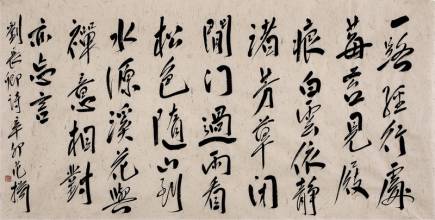 一路經行處
莓苔見履
痕白雲依靜
渚芳草闭
閒门過雨看
松色隨山到
水源溪花與
禪意相對
亦忘言
劉長卿詩辛卯